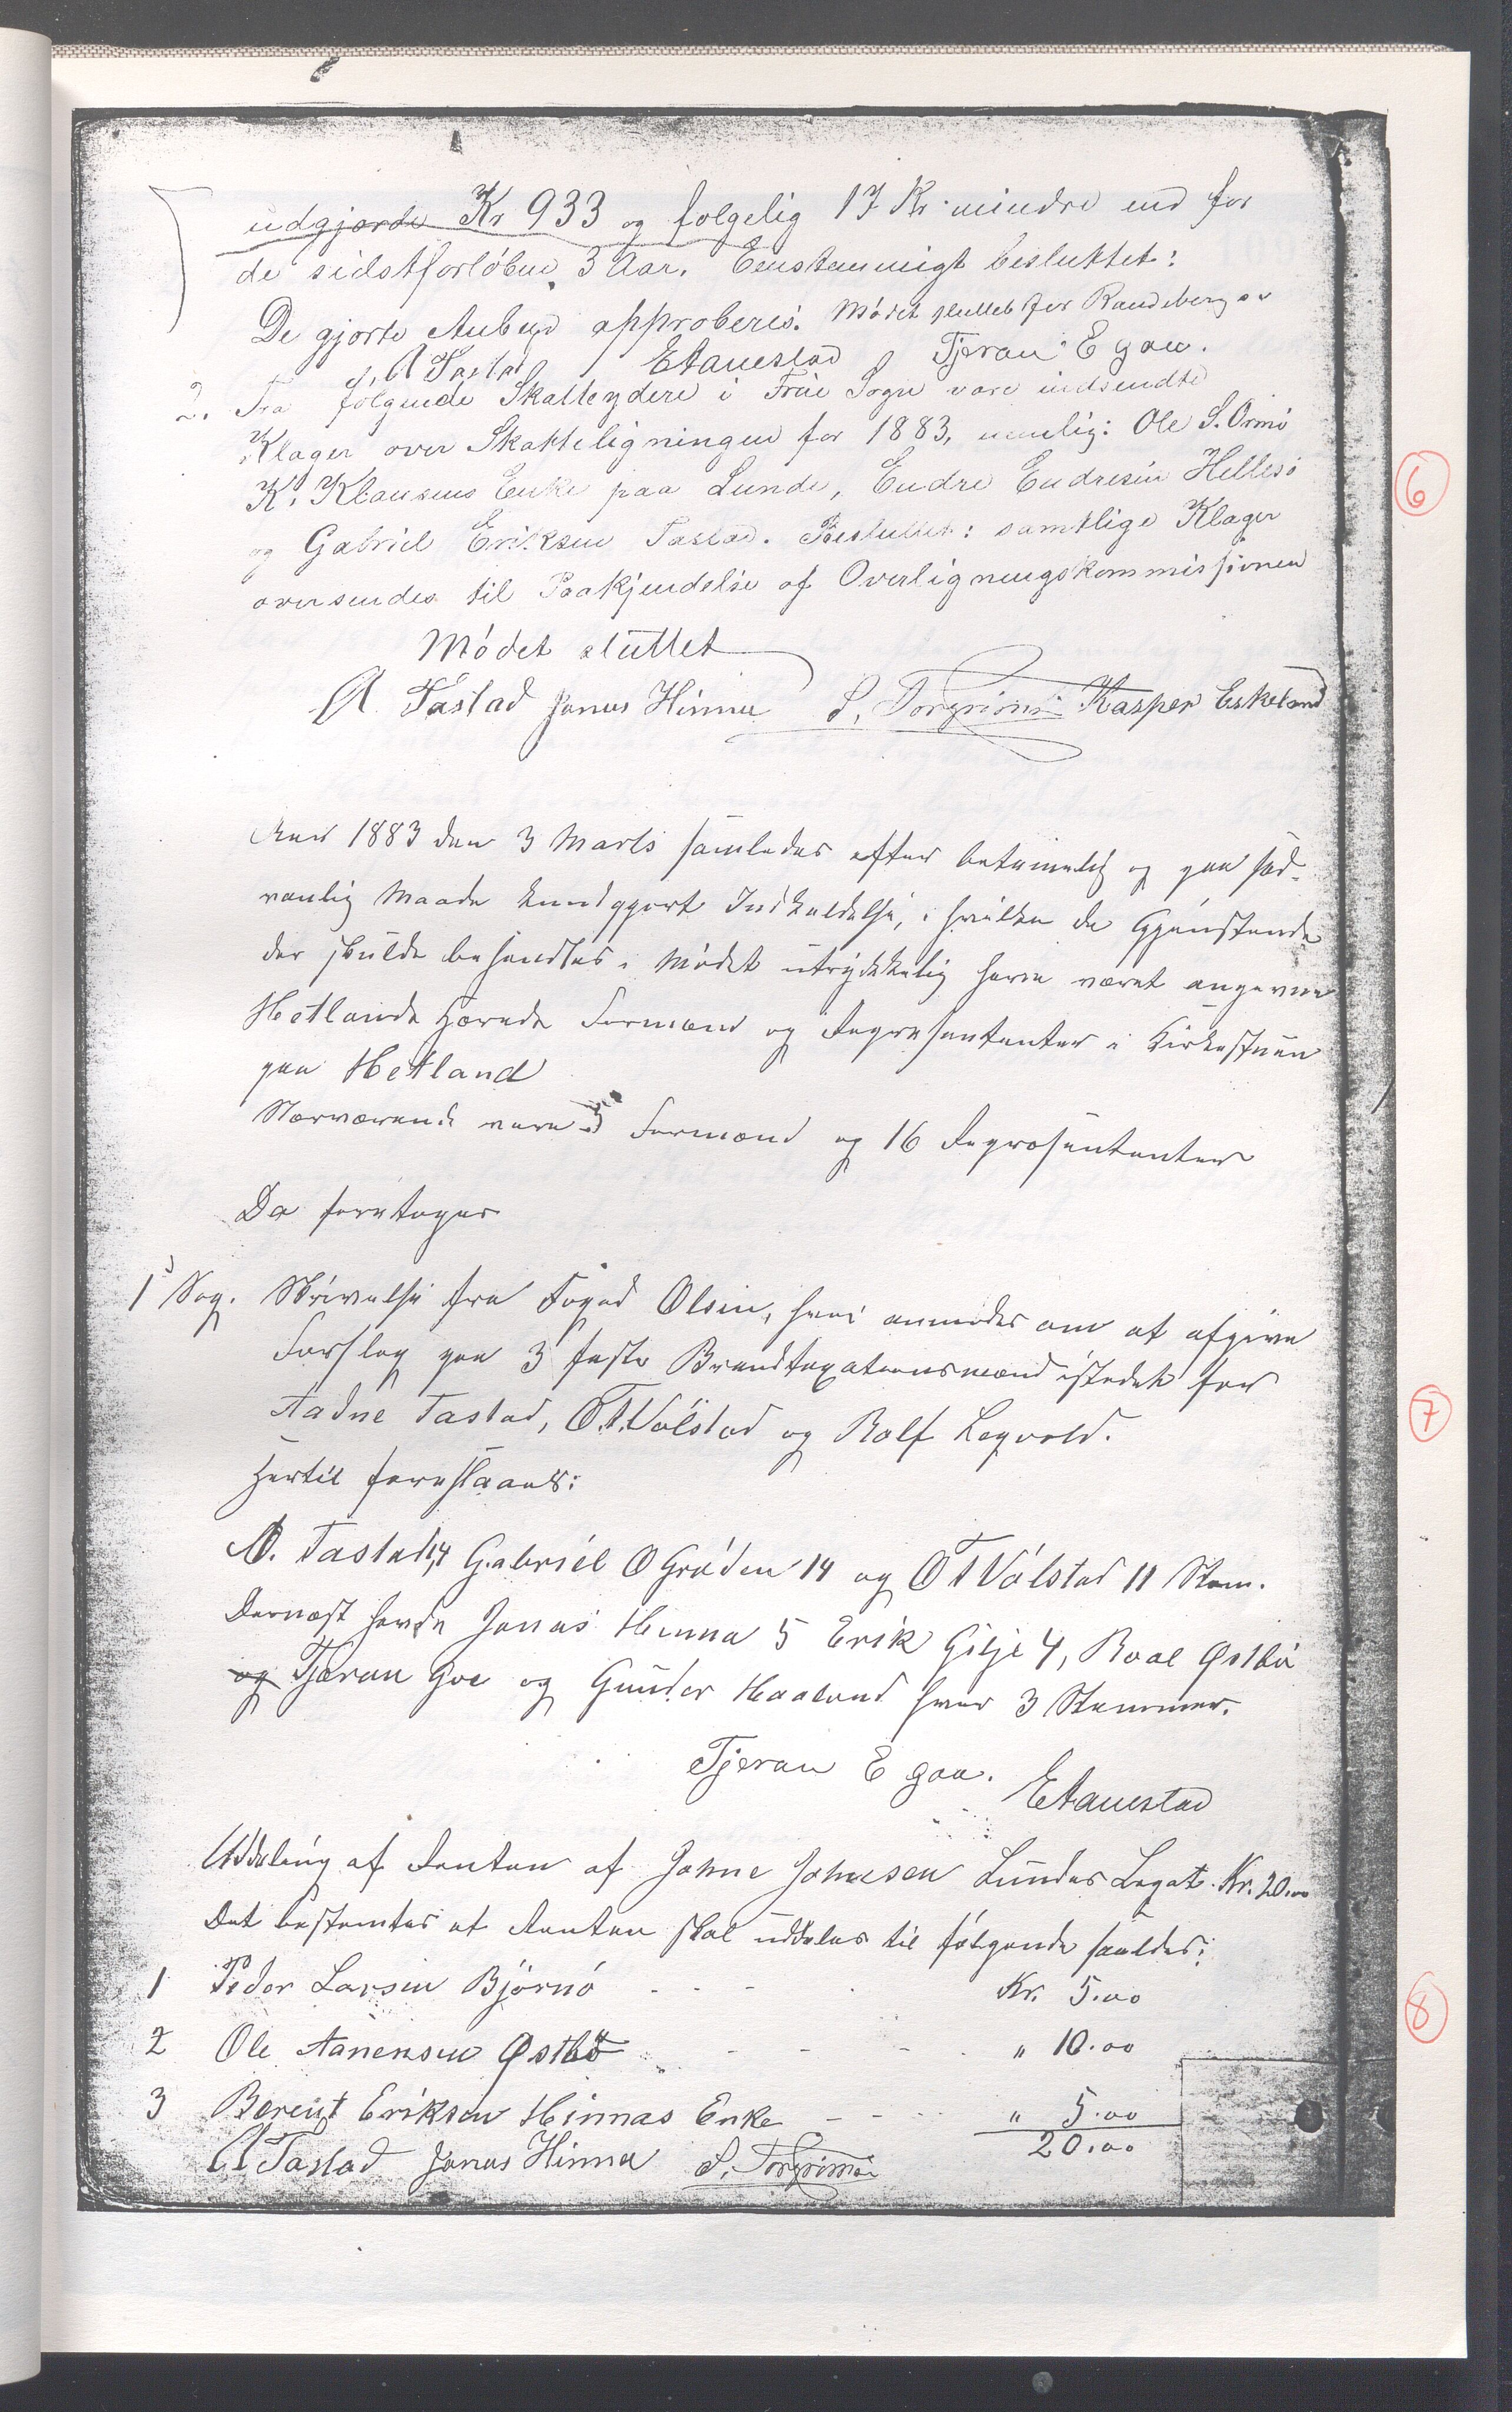 udgjorde Kr 933 og følgelig 17 Kr. mindre end for
de sidstforløbne 3 Aar. Eenstemmigt besluttet:
De gjorte Anbud approberes. Mødet sluttet for Randeberg
A Tastad Etanestad Tjeran E goa.
2. Fra følgende Skatteydere i Frue Sogn vare indsendte
Klager over Skatteligningen for 1883, nemlig: Ole S. Ormø
K. Klausens Enke paa Lunde, Endre Endresen Hellesø
og Gabriel Eriksen Tastad. Besluttet: samtlige Klager
oversendes til Paakjendelse af Overligningskommissionen
Mødet sluttet
A Tastad Jonas Hinna S. Torgrimsø Kasper Eskeland
Aar 1883 den 3 Marts samledes efter betimelig og paa sæd-
vanlig Maade kundgjort Indkaldelse, i hvilken de Gjenstande
der skulde behandles i Mødet utrykkelig have været angivne
Hetlands Herreds Formænd og Repræsentanter i Kirkestuen
paa Hetland
Nærværende vare 5 Formænd og 16 Repræsentanter
Da foretages
1 Sag. Skrivelse fra Foged Olsen, hvori anmodes om at afgive
Forslag paa 3 faste Brandtaxationsmænd istedet for
Aadne Tastad, O. T. Vølstad og Rolf Legvold.
Hertil foreslaaes:
A. Tastad 14 Gabriel O Grøden 14 og O T Vølstad 11 Stem.
Dernæst havde Jonas Hinna 5 Erik Gilje 4, Roal Østbø
og Tjeran Goe og Gunder Haaland hver 3 Stemmer.
Tjeran E goa. Etanestad
Uddeling af Renten af Johne Johnesen Lundes Legat. Kr. 20.00
Det bestemtes at Renten skal uddeles til følgende saaledes:
1 Peder Larsen Bjørnø - - - Kr. 5.00
2 Ole Aanensen Østbø - - - " 10.00
3 Berent Eriksen Hinnas Enke - - - " 5.00
20.00
A Tastad Jonas Hinna S. Torgrimsø
6
7
8